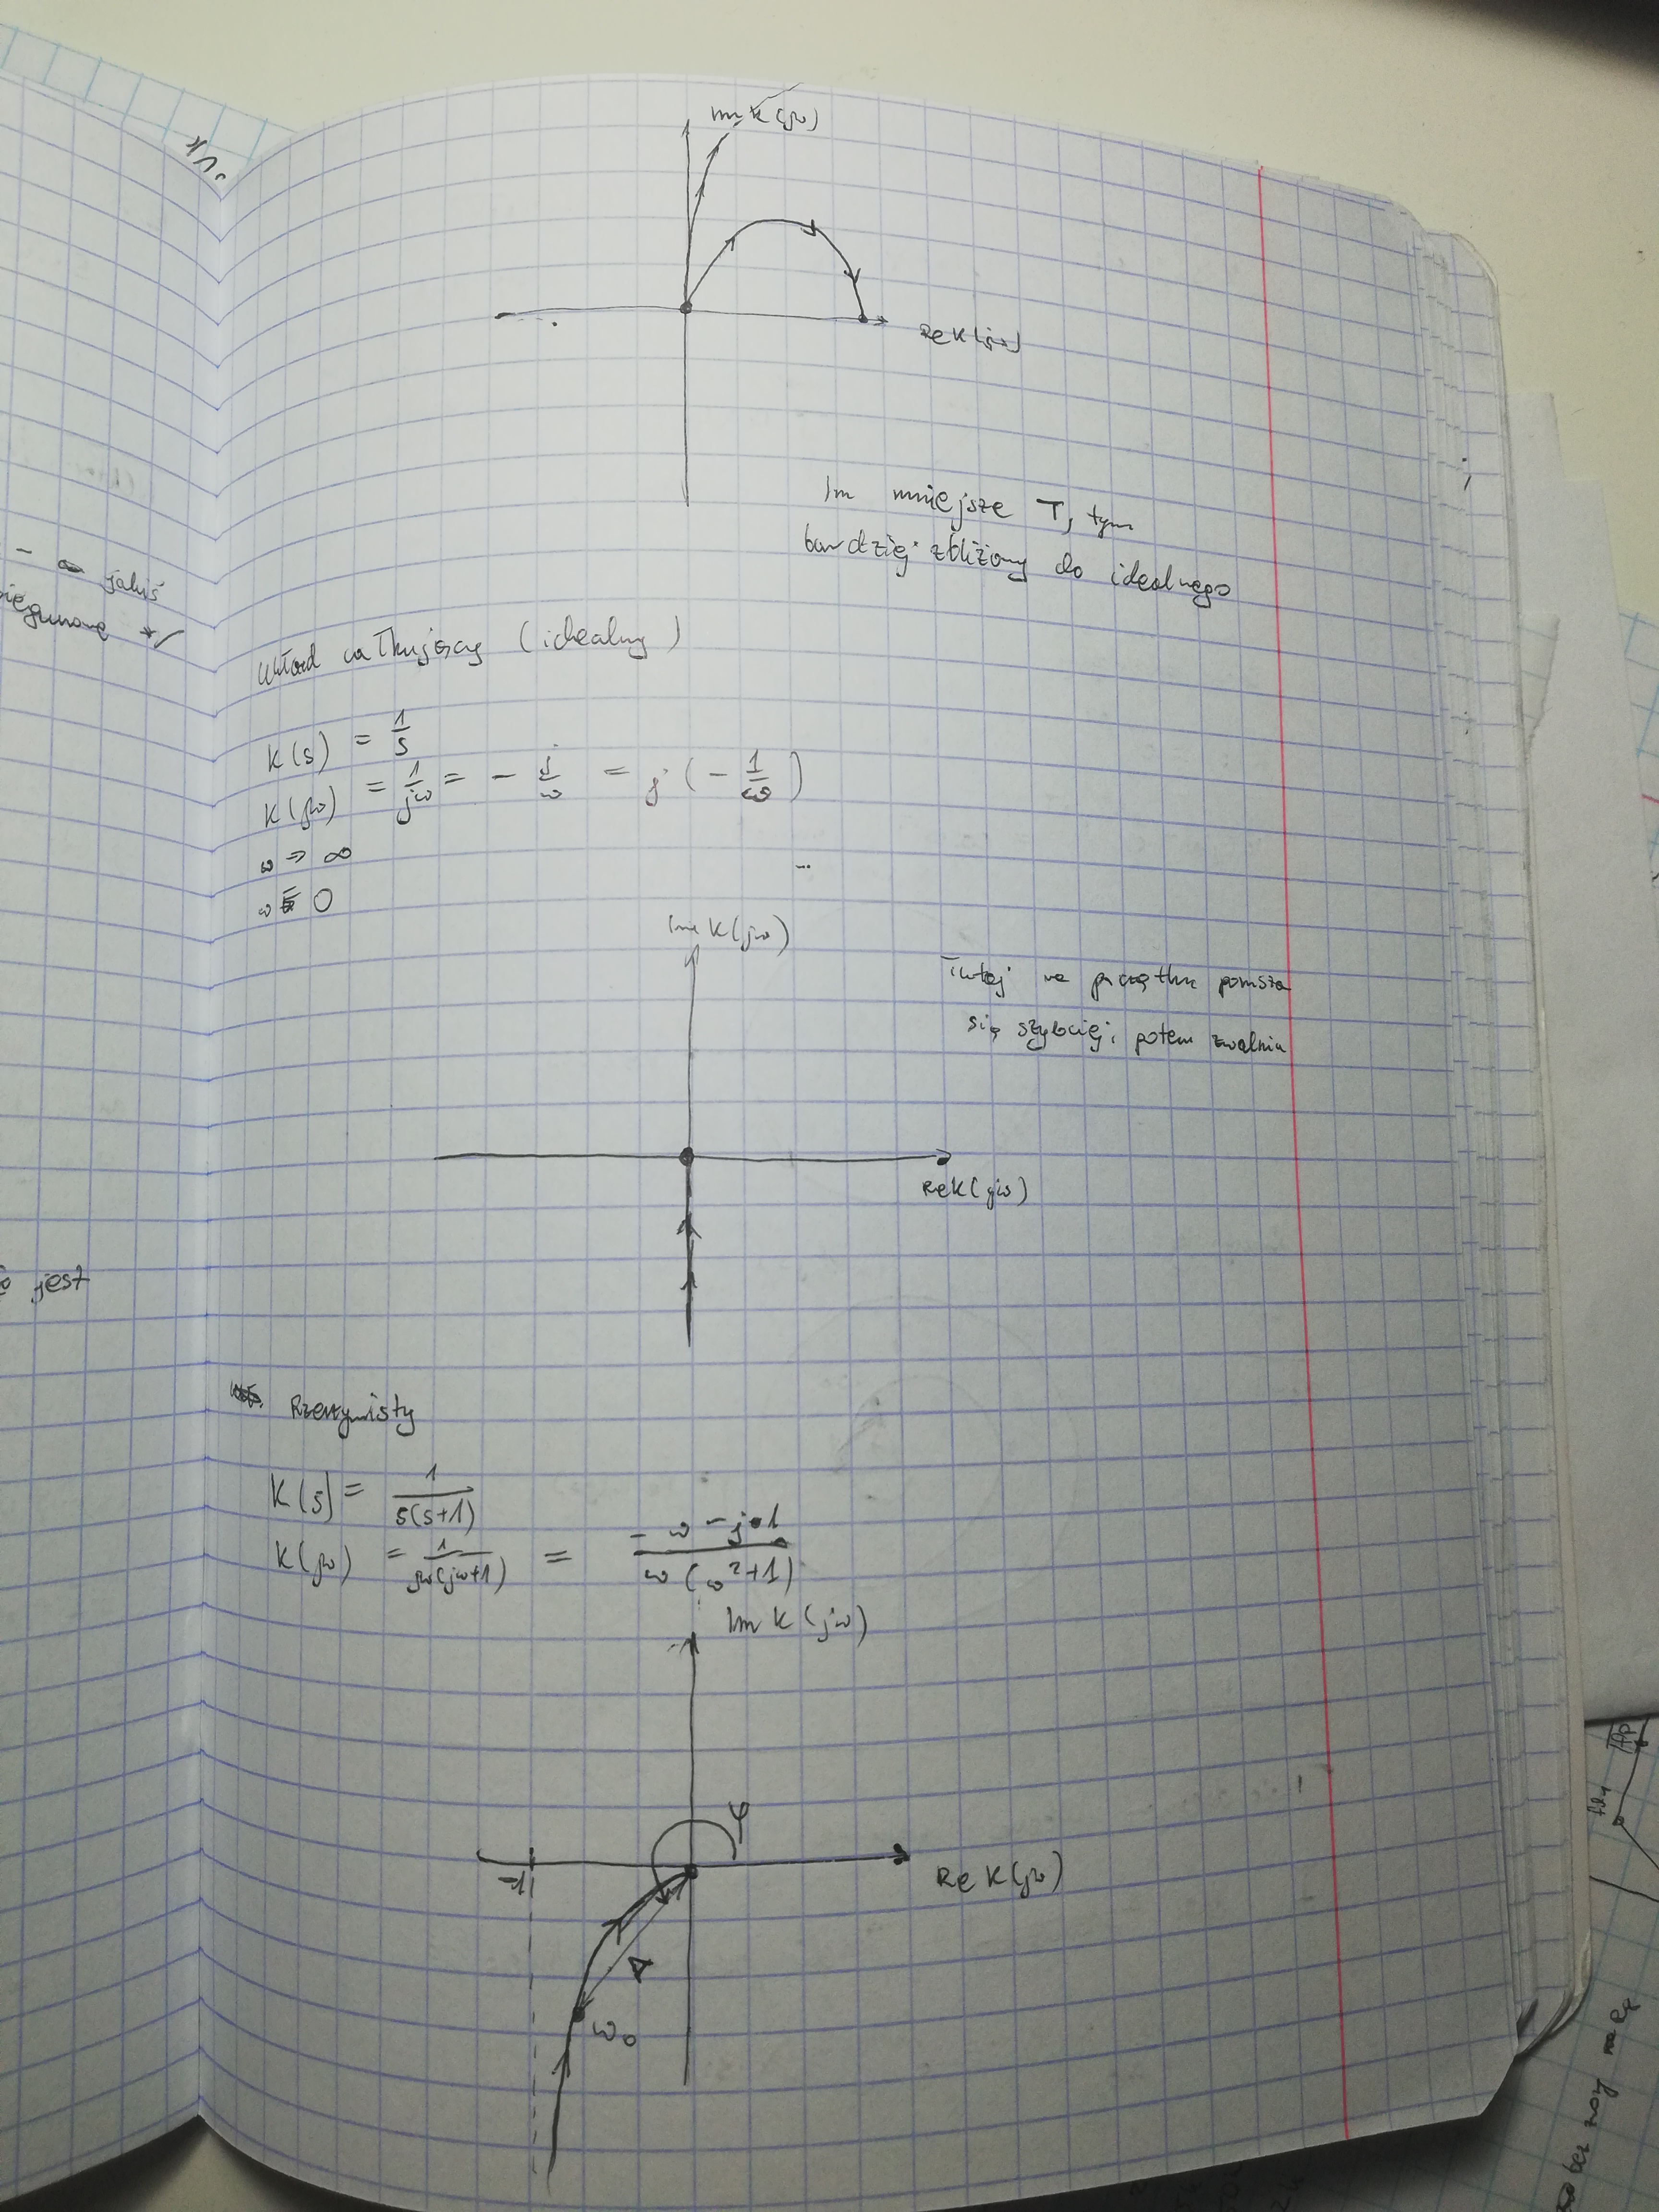 Im K(jω)
Re K(jω)
Im mniejsze T, tym
bardziej zbliżony do idealnego
- ∞ jakiś
*/
Układ całkujący (idealny)
K(s) = 1/s
K(jω) = 1/jω = - j/ω = j(- 1/ω)
ω → ∞
ω 0
Im K(jω)
Tutaj na początku porusza
się szybciej, potem zwalnia
Re K(jω)
jest
Rzeczywisty
K(s) = 1/s(s+1)
K(jω) = 1/jω(jω+1) = -ω - j·1/ω(ω²+1)
Im K(jω)
φ
-1
Re K(jω)
A
ω₀
bez